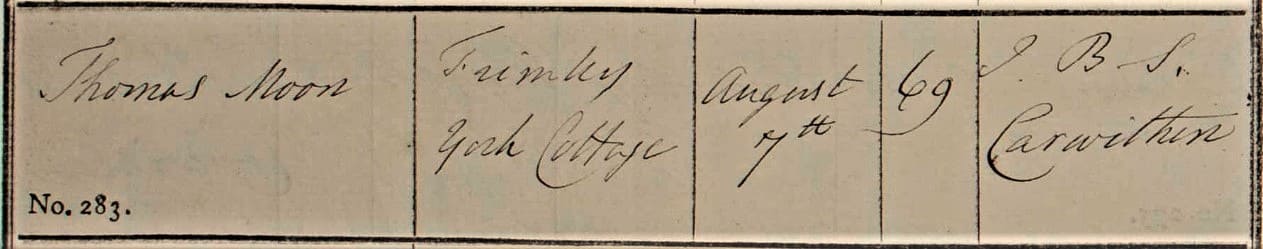 Thomas Moon
No. 283.
Frimley
York Cottage
August
7th
69
J. B. S.
Carwithen